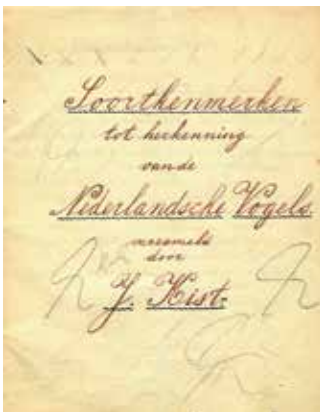 Soortkenmerken
tot herkenning
van de
Nederlandsche Vogels.
verzameld
door
J. Kist.